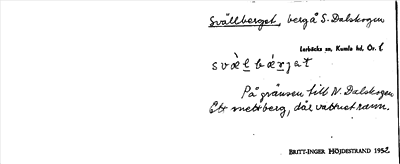 Svällberget, berg å S. Dalskogen
Lerbäcks sn, Kumla hd, Ör. l
På gränsen till N. Dalskogen
Ett mettberg, där vattnet rann.
BRITT-INGER HÖJDESTRAND 1952